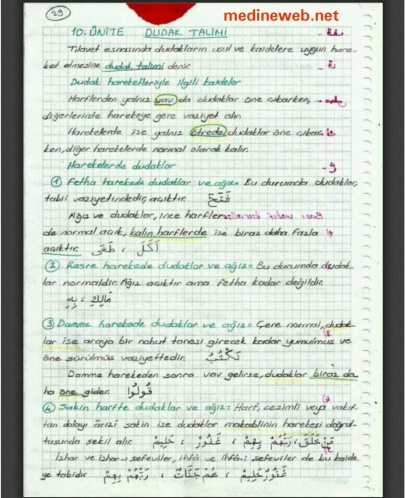 29
medineweb.net
10. ÜNİTE DUDAK TALİMİ
Tilavet esnasında dudakların usul ve kaidelere uygun hare-
ket etmesine dudak talimi denir.
Dudak hareketleriyle ilgili kaideler
Harflerden yalnız vav da dudaklar öne çıkarken,
diğerlerinde harekeye göre vaziyet alır.
Harekelerde ise yalnız ötrede dudaklar öne çıkar
ken, diğer harekelerde normal olarak kalır.
Harekelerde dudaklar
① Fetha harekede dudaklar ve ağız= Bu durumda dudaklar,
tabii vaziyetindedir, açıktır. فَتَحَ
Ağız ve dudaklar, ince harflerde
de normal açık, kalın harflerde ise biraz daha fazla
açıktır. أَكَلَ ، طَغَى
② Kesre harekede dudaklar ve ağız= Bu durumda dudak-
lar normaldir. Ağız açıktır ama fetha kadar değildir.
مَالِكِ ، بِهِ
③ Damme harekede dudaklar ve ağız= Çene normal, dudak-
lar ise araya bir nohut tanesi girecek kadar yumulmuş ve
öne sürülmüş vaziyettedir. تَكْتُبُ
Damme harekeden sonra vav gelirse, dudaklar biraz da-
ha öne gider. قُولُوا
④ Sakin harfte dudaklar ve ağız= Harf, cezimli veya vakıf-
tan dolayı ârizi sakin ise dudaklar makablinin harekesi doğrul-
tusunda şekil alır. مَنْ خَلَقَ ، رَبَّهُمْ بِهِمْ ، غَفُورٌ ، حَلِيمٌ
İzhar ve İzhar-ı şefeviler, ihfâ ve ihfâ-i şefeviler de bu kaide
ye tabidir. غَفُورٌ حَلِيمٌ ، هُمْ جَنَّاتٌ ، رَبَّهُمْ بِهِمْ